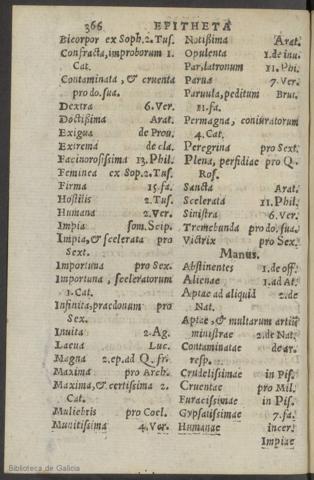 366 EPITHETA
Bicorpor ex Soph. 2. Tus.
Confracta, improborum 1.
Cat.
Contaminata, & cruenta
pro do. sua.
Dextra 6. Ver.
Doctissima Arat.
Exigua de Prou.
Extrema de cla.
Facinorosissima 13. Phil.
Feminea ex Sop. 2. Tus.
Firma 15. fa.
Hostilis 2. Tus.
Humana 2. Ver.
Impia som. Scip.
Impia, & scelerata pro
Sext.
Importuna pro Sex.
Importuna, sceleratorum
1. Cat.
Infinita, praedonum pro
Sex.
Inuita 2. Ag.
Laeua Luc.
Magna 2. ep. ad Q. fri.
Maxima pro Arch.
Maxima, & certissima 2.
Cat.
Muliebris pro Coel.
Munitissima 4. Ver.
Notissima Arat.
Opulenta 1. de inu.
Par, latronum 11. Phi.
Parua 7. Ver.
Paruula, peditum Brut.
11. fa.
Permagna, coniuratorum
4. Cat.
Peregrina pro Sext.
Plena, perfidiae pro Q.
Ros.
Sancta Arat.
Scelerata 11. Phil.
Sinistra 6. Ver.
Tremebunda pro do. sua.
Victrix pro Sex.
Manus.
Abstinentes 1. de off.
Alienae 1. ad At.
Aptae ad aliquid 2. de
Nat.
Aptae, & multarum artiũ
ministrae 2. de Nat.
Contaminatae de ar.
resp.
Crudelissimae in Pis.
Cruentae pro Mil.
Furacissimae in Pis.
Gypsatissimae 7. fa.
Humanae incer.
Impiae
Biblioteca de Galicia